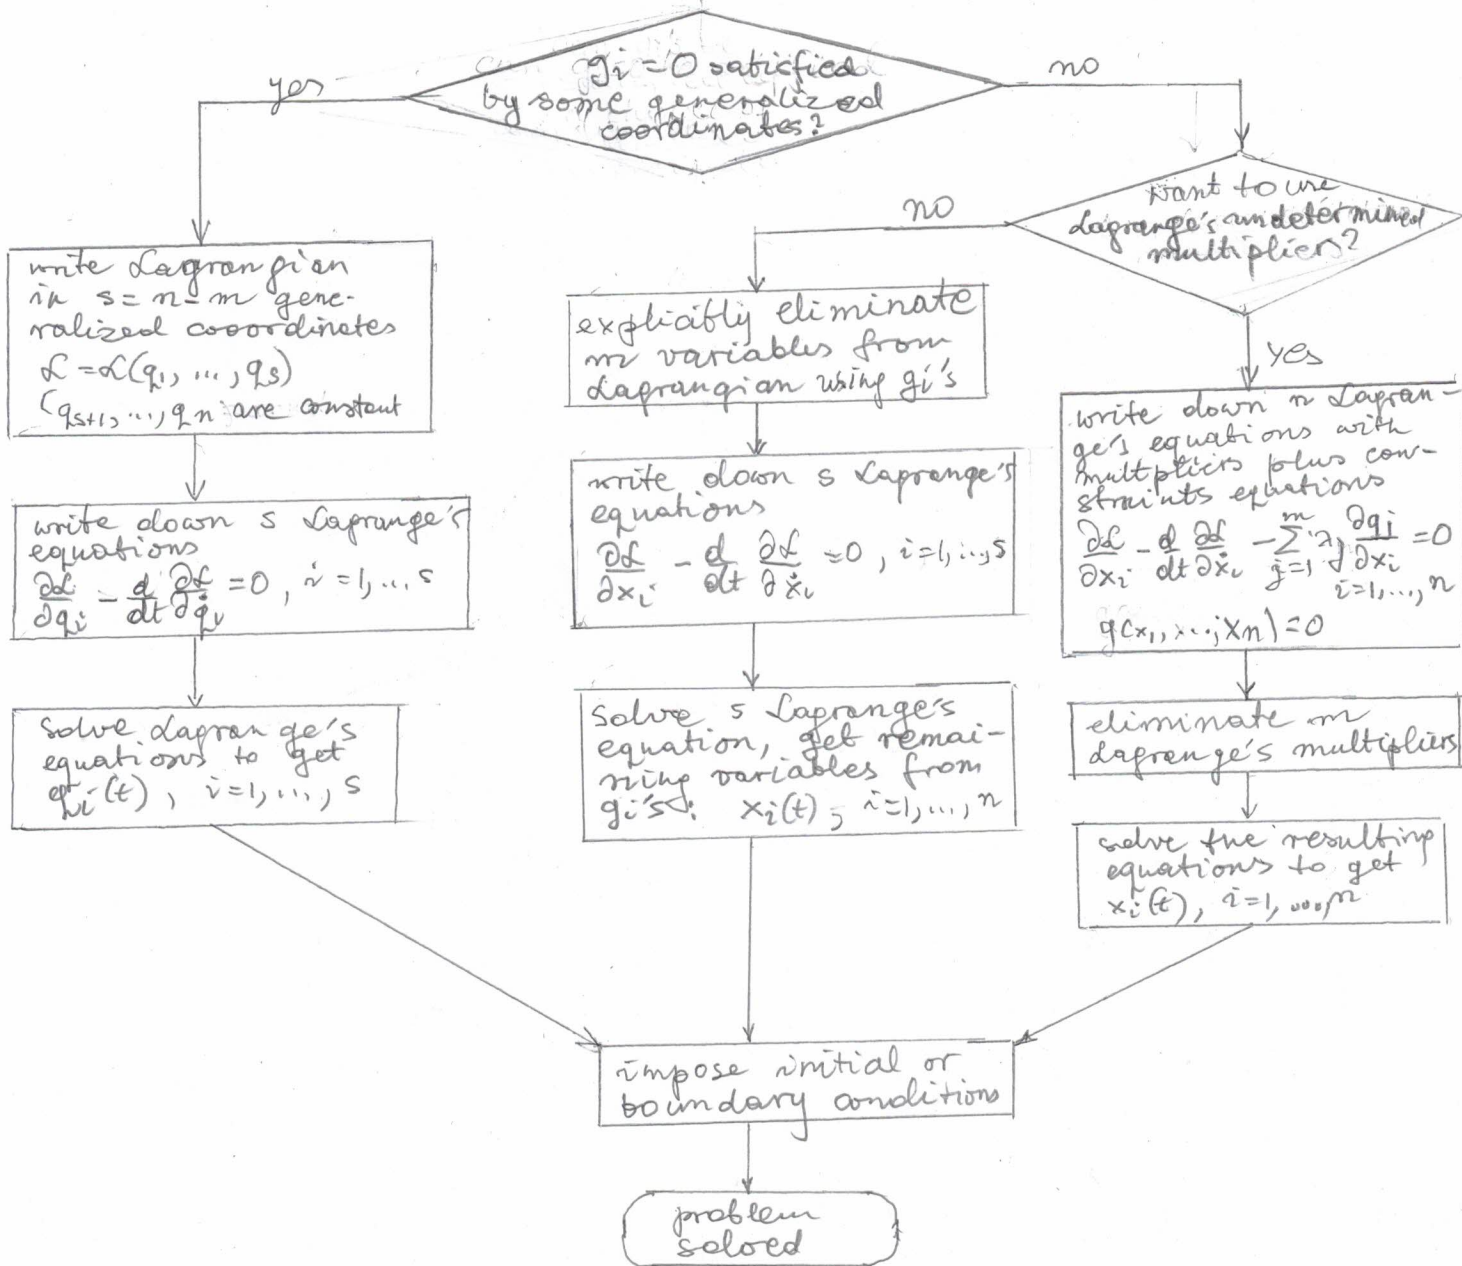 yes
g_i = 0 satisfied
by some generalized
coordinates?
no
want to use
Lagrange's undetermined
multipliers?
no
yes
write Lagrangian
in s = n - m gene-
ralized cooordinates
ℒ = ℒ(q_1, ..., q_s)
(q_{s+1}, ..., q_n are constant
write down s Lagrange's
equations
∂ℒ/∂q_i - d/dt ∂ℒ/∂q̇_i = 0, i = 1, ... s
solve Lagrange's
equations to get
q_i(t), i=1, ..., s
explicitly eliminate
m variables from
Lagrangian using g_i's
write down s Lagrange's
equations
∂ℒ/∂x_i - d/dt ∂ℒ/∂ẋ_i = 0, i=1, ..., s
solve s Lagrange's
equation, get remai-
ning variables from
g_i's: x_i(t), i=1, ..., n
write down n Lagran-
ge's equations with
multpliers plus con-
straints equations
∂ℒ/∂x_i - d/dt ∂ℒ/∂ẋ_i - ∑_{j=1}^m λ_j ∂g_j/∂x_i = 0
i=1, ..., n
g(x_1, ..., x_n) = 0
eliminate m
Lagrange's multipliers
solve the resulting
equations to get
x_i(t), i=1, ..., n
impose initial or
boundary conditions
problem
solved